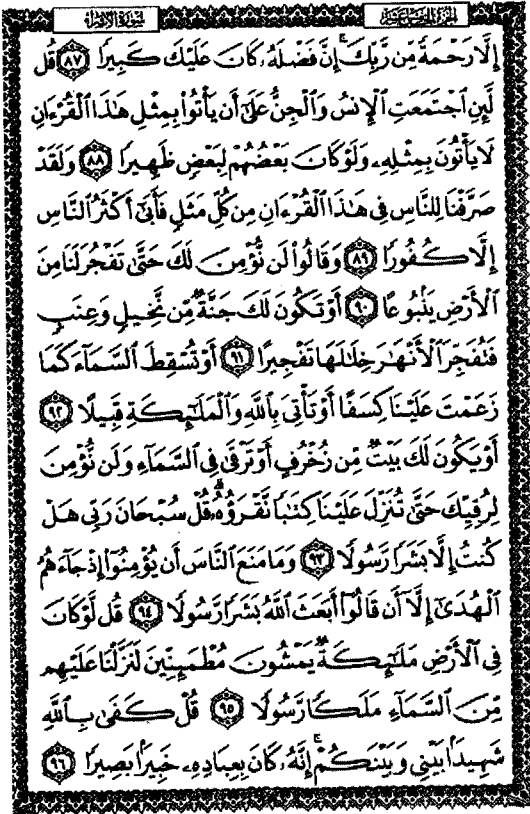 الجزء الخامس عشر
سورة الإسراء
إِلَّا رَحْمَةً مِّن رَّبِّكَ ۚ إِنَّ فَضْلَهُۥ كَانَ عَلَيْكَ كَبِيرًا ٨٧ قُل
لَّئِنِ ٱجْتَمَعَتِ ٱلْإِنسُ وَٱلْجِنُّ عَلَىٰٓ أَن يَأْتُوا۟ بِمِثْلِ هَـٰذَا ٱلْقُرْءَانِ
لَا يَأْتُونَ بِمِثْلِهِۦ وَلَوْ كَانَ بَعْضُهُمْ لِبَعْضٍ ظَهِيرًا ٨٨ وَلَقَدْ
صَرَّفْنَا لِلنَّاسِ فِى هَـٰذَا ٱلْقُرْءَانِ مِن كُلِّ مَثَلٍ فَأَبَىٰٓ أَكْثَرُ ٱلنَّاسِ
إِلَّا كُفُورًا ٨٩ وَقَالُوا۟ لَن نُّؤْمِنَ لَكَ حَتَّىٰ تَفْجُرَ لَنَا مِنَ
ٱلْأَرْضِ يَنۢبُوعًا ٩٠ أَوْ تَكُونَ لَكَ جَنَّةٌ مِّن نَّخِيلٍ وَعِنَبٍ
فَتُفَجِّرَ ٱلْأَنْهَـٰرَ خِلَـٰلَهَا تَفْجِيرًا ٩١ أَوْ تُسْقِطَ ٱلسَّمَآءَ كَمَا
زَعَمْتَ عَلَيْنَا كِسَفًا أَوْ تَأْتِىَ بِٱللَّهِ وَٱلْمَلَـٰٓئِكَةِ قَبِيلًا ٩٢
أَوْ يَكُونَ لَكَ بَيْتٌ مِّن زُخْرُفٍ أَوْ تَرْقَىٰ فِى ٱلسَّمَآءِ وَلَن نُّؤْمِنَ
لِرُقِيِّكَ حَتَّىٰ تُنَزِّلَ عَلَيْنَا كِتَـٰبًا نَّقْرَؤُهُۥ ۗ قُلْ سُبْحَانَ رَبِّى هَلْ
كُنتُ إِلَّا بَشَرًا رَّسُولًا ٩٣ وَمَا مَنَعَ ٱلنَّاسَ أَن يُؤْمِنُوٓا۟ إِذْ جَآءَهُمُ
ٱلْهُدَىٰٓ إِلَّآ أَن قَالُوٓا۟ أَبَعَثَ ٱللَّهُ بَشَرًا رَّسُولًا ٩٤ قُل لَّوْ كَانَ
فِى ٱلْأَرْضِ مَلَـٰٓئِكَةٌ يَمْشُونَ مُطْمَئِنِّينَ لَنَزَّلْنَا عَلَيْهِم
مِّنَ ٱلسَّمَآءِ مَلَكًا رَّسُولًا ٩٥ قُلْ كَفَىٰ بِٱللَّهِ
شَهِيدًۢا بَيْنِى وَبَيْنَكُمْ ۚ إِنَّهُۥ كَانَ بِعِبَادِهِۦ خَبِيرًۢا بَصِيرًا ٩٦